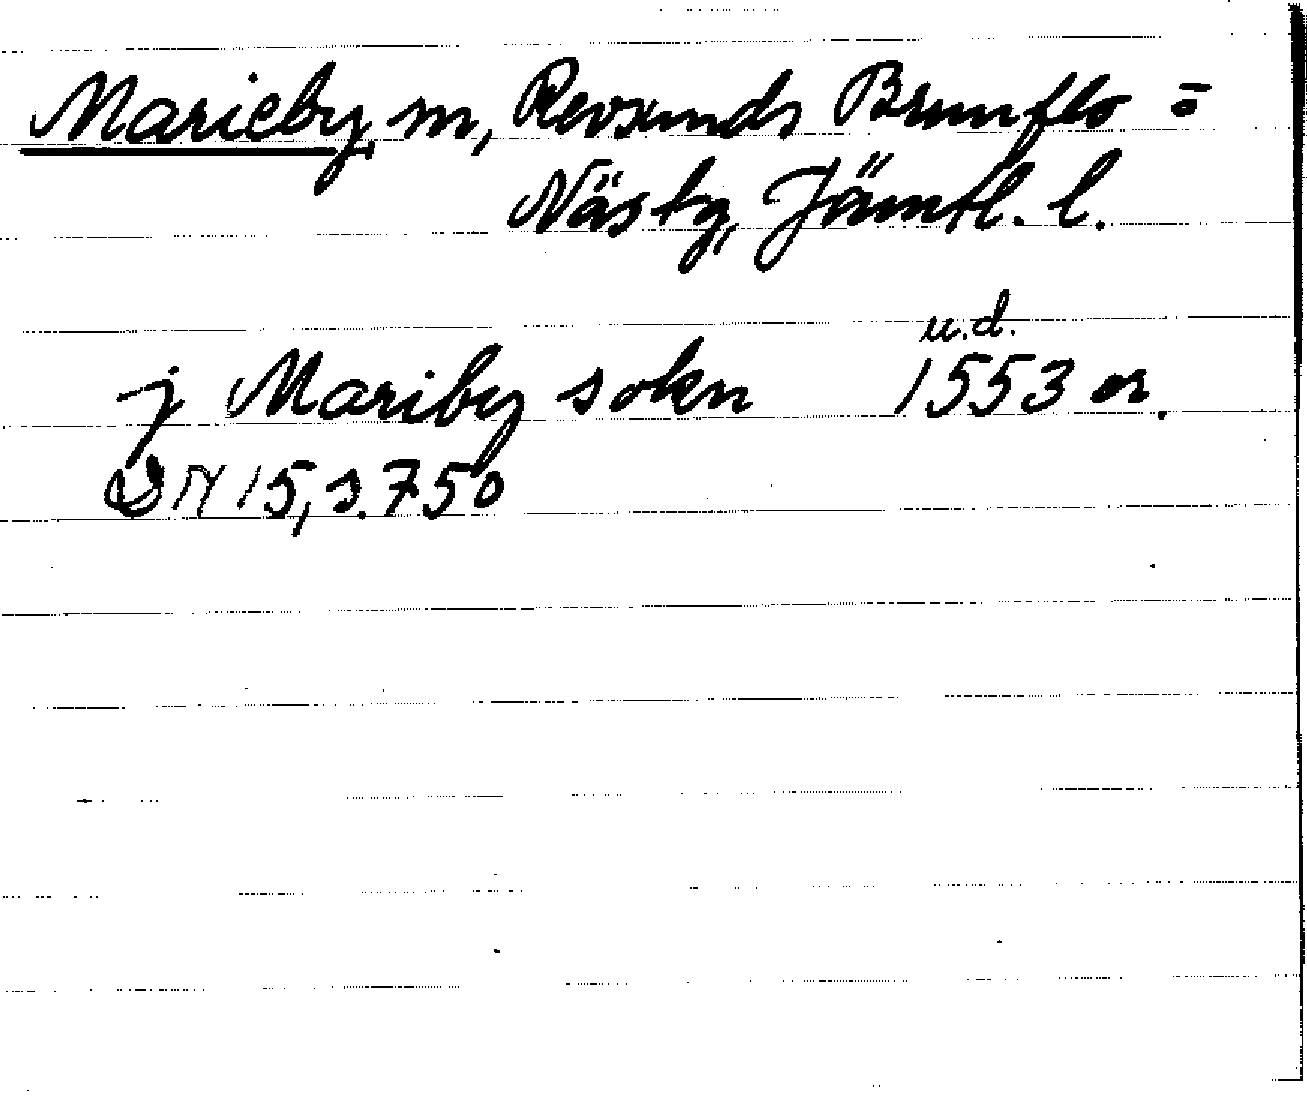 Marieby, sn, Revsunds Brunflo =
Näs tg, Jämtl. l.
u.d.
j Mariby sokn 1553 or.
DN 15, s. 750